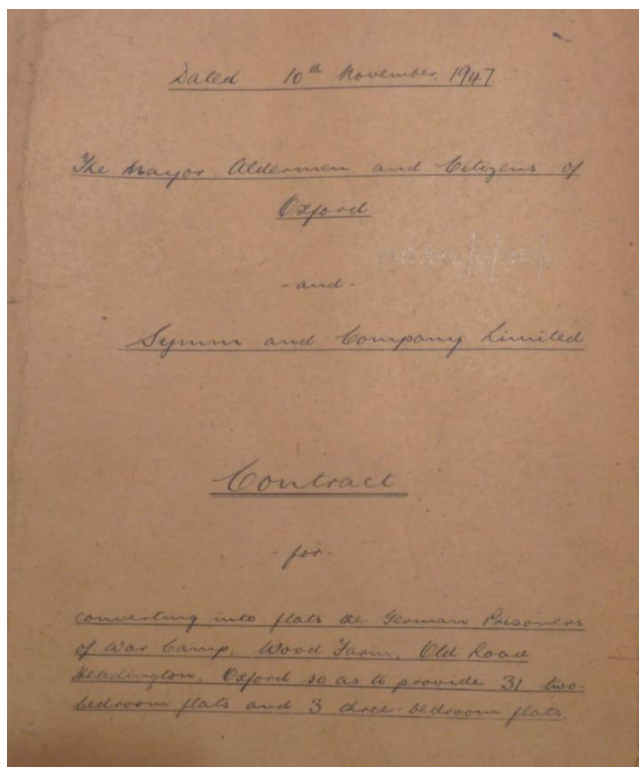 Dated 10th November, 1947
The Mayor Aldermen and Citizens of
Oxford
- and -
Symm and Company Limited
Contract
- for -
converting into flats the German Prisoners
of War Camp, Wood Farm, Old Road
Headington, Oxford so as to provide 31 two-
bedroom flats and 3 three-bedroom flats.